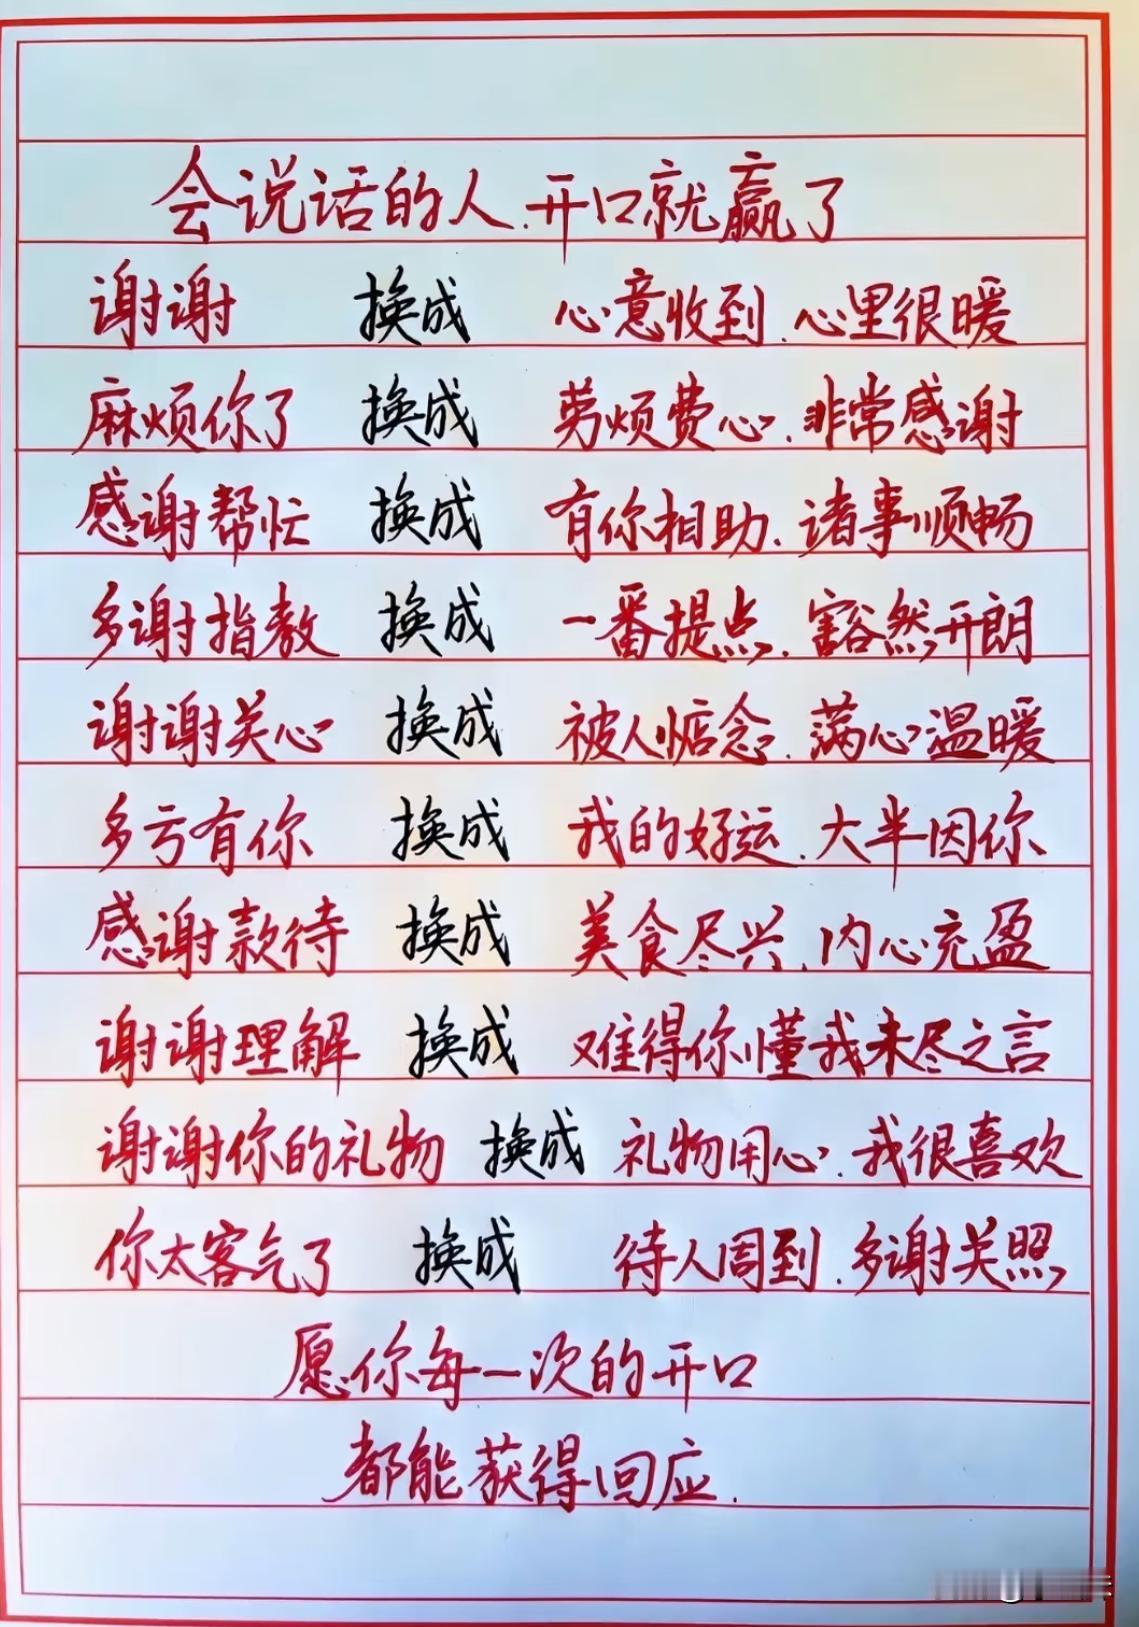 会说话的人.开口就赢了
谢谢 换成 心意收到.心里很暖
麻烦你了 换成 劳烦费心.非常感谢
感谢帮忙 换成 有你相助.诸事顺畅
多谢指教 换成 一番提点.豁然开朗
谢谢关心 换成 被人惦念.满心温暖
多亏有你 换成 我的好运.大半因你
感谢款待 换成 美食尽兴.内心充盈
谢谢理解 换成 难得你懂我未尽之言
谢谢你的礼物 换成 礼物用心.我很喜欢
你太客气了 换成 待人周到.多谢关照
愿你每一次的开口
都能获得回应.